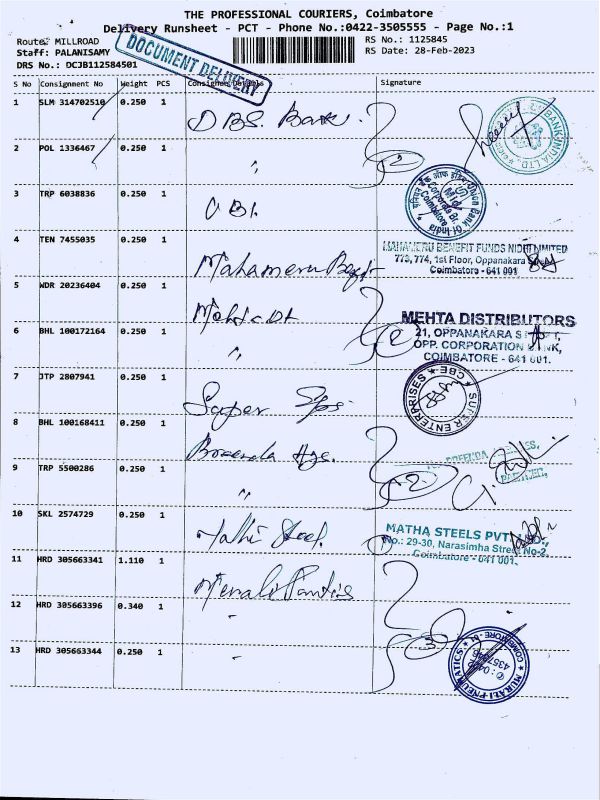 THE PROFESSIONAL COURIERS, Coimbatore
Delivery Runsheet - PCT - Phone No.:0422-3505555 - Page No.:1
Route: MILLROAD
Staff: PALANISAMY
DRS No.: DCJB112584501
RS No.: 1125845
RS Date: 28-Feb-2023
DOCUMENT DELIVERY
S No Consignment No Weight PCS Consignee Details Signature
1 SLM 314702510 0.250 1 DBS. Bank.
2 POL 1336467 0.250 1 "
2
3 TRP 6038836 0.250 1 UBI.
Union Bank Of India
Corporate Br.
Coimbatore
4 TEN 7455035 0.250 1 Mahameru
MAHAMERU BENEFIT FUNDS NIDHI LIMITED
773, 774, 1st Floor, Oppanakara Street
Coimbatore - 641 001
5 WDR 20236404 0.250 1 Mehta
MEHTA DISTRIBUTORS
21, OPPANAKARA STREET,
OPP. CORPORATION BANK,
COIMBATORE - 641 001.
6 BHL 100172164 0.250 1 "
2
7 JTP 2807941 0.250 1 Super
SUPER ENTERPRISES ★ CBE ★
8 BHL 100168411 0.250 1
9 TRP 5500286 0.250 1 "
2
10 SKL 2574729 0.250 1 Steel
1
MATHA STEELS PVT. LTD.,
No.: 29-30, Narasimha Street No-2,
Coimbatore - 641 001.
11 HRD 305663341 1.110 1
12 HRD 305663396 0.340 1 "
13 HRD 305663344 0.250 1 "
3
MURALI PNEUMATICS